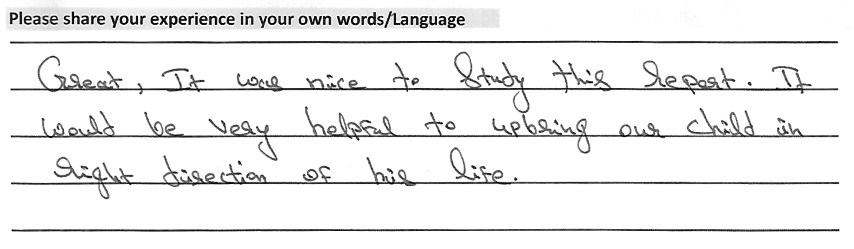 Please share your experience in your own words/Language
Great, It was nice to Study this Report. It
would be very helpful to upbring our child in
right direction of his life.